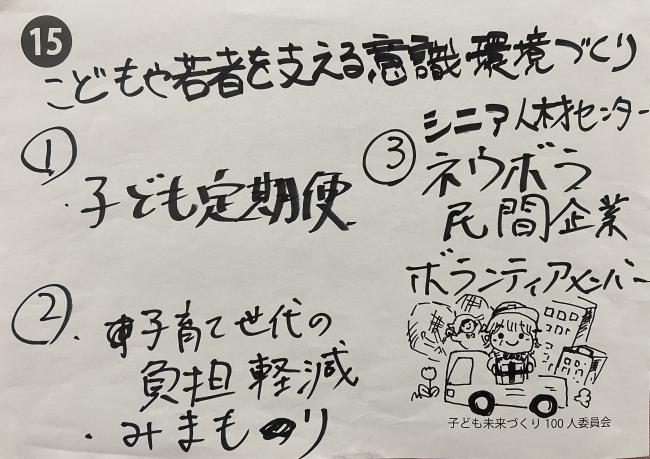 15
こどもや若者を支える意識・環境づくり
①
・子ども定期便
②
・子育て世代の
負担軽減
・みまもり
③
シニア人材センター
ネウボラ
民間企業
ボランティアメンバー
子ども未来づくり100人委員会